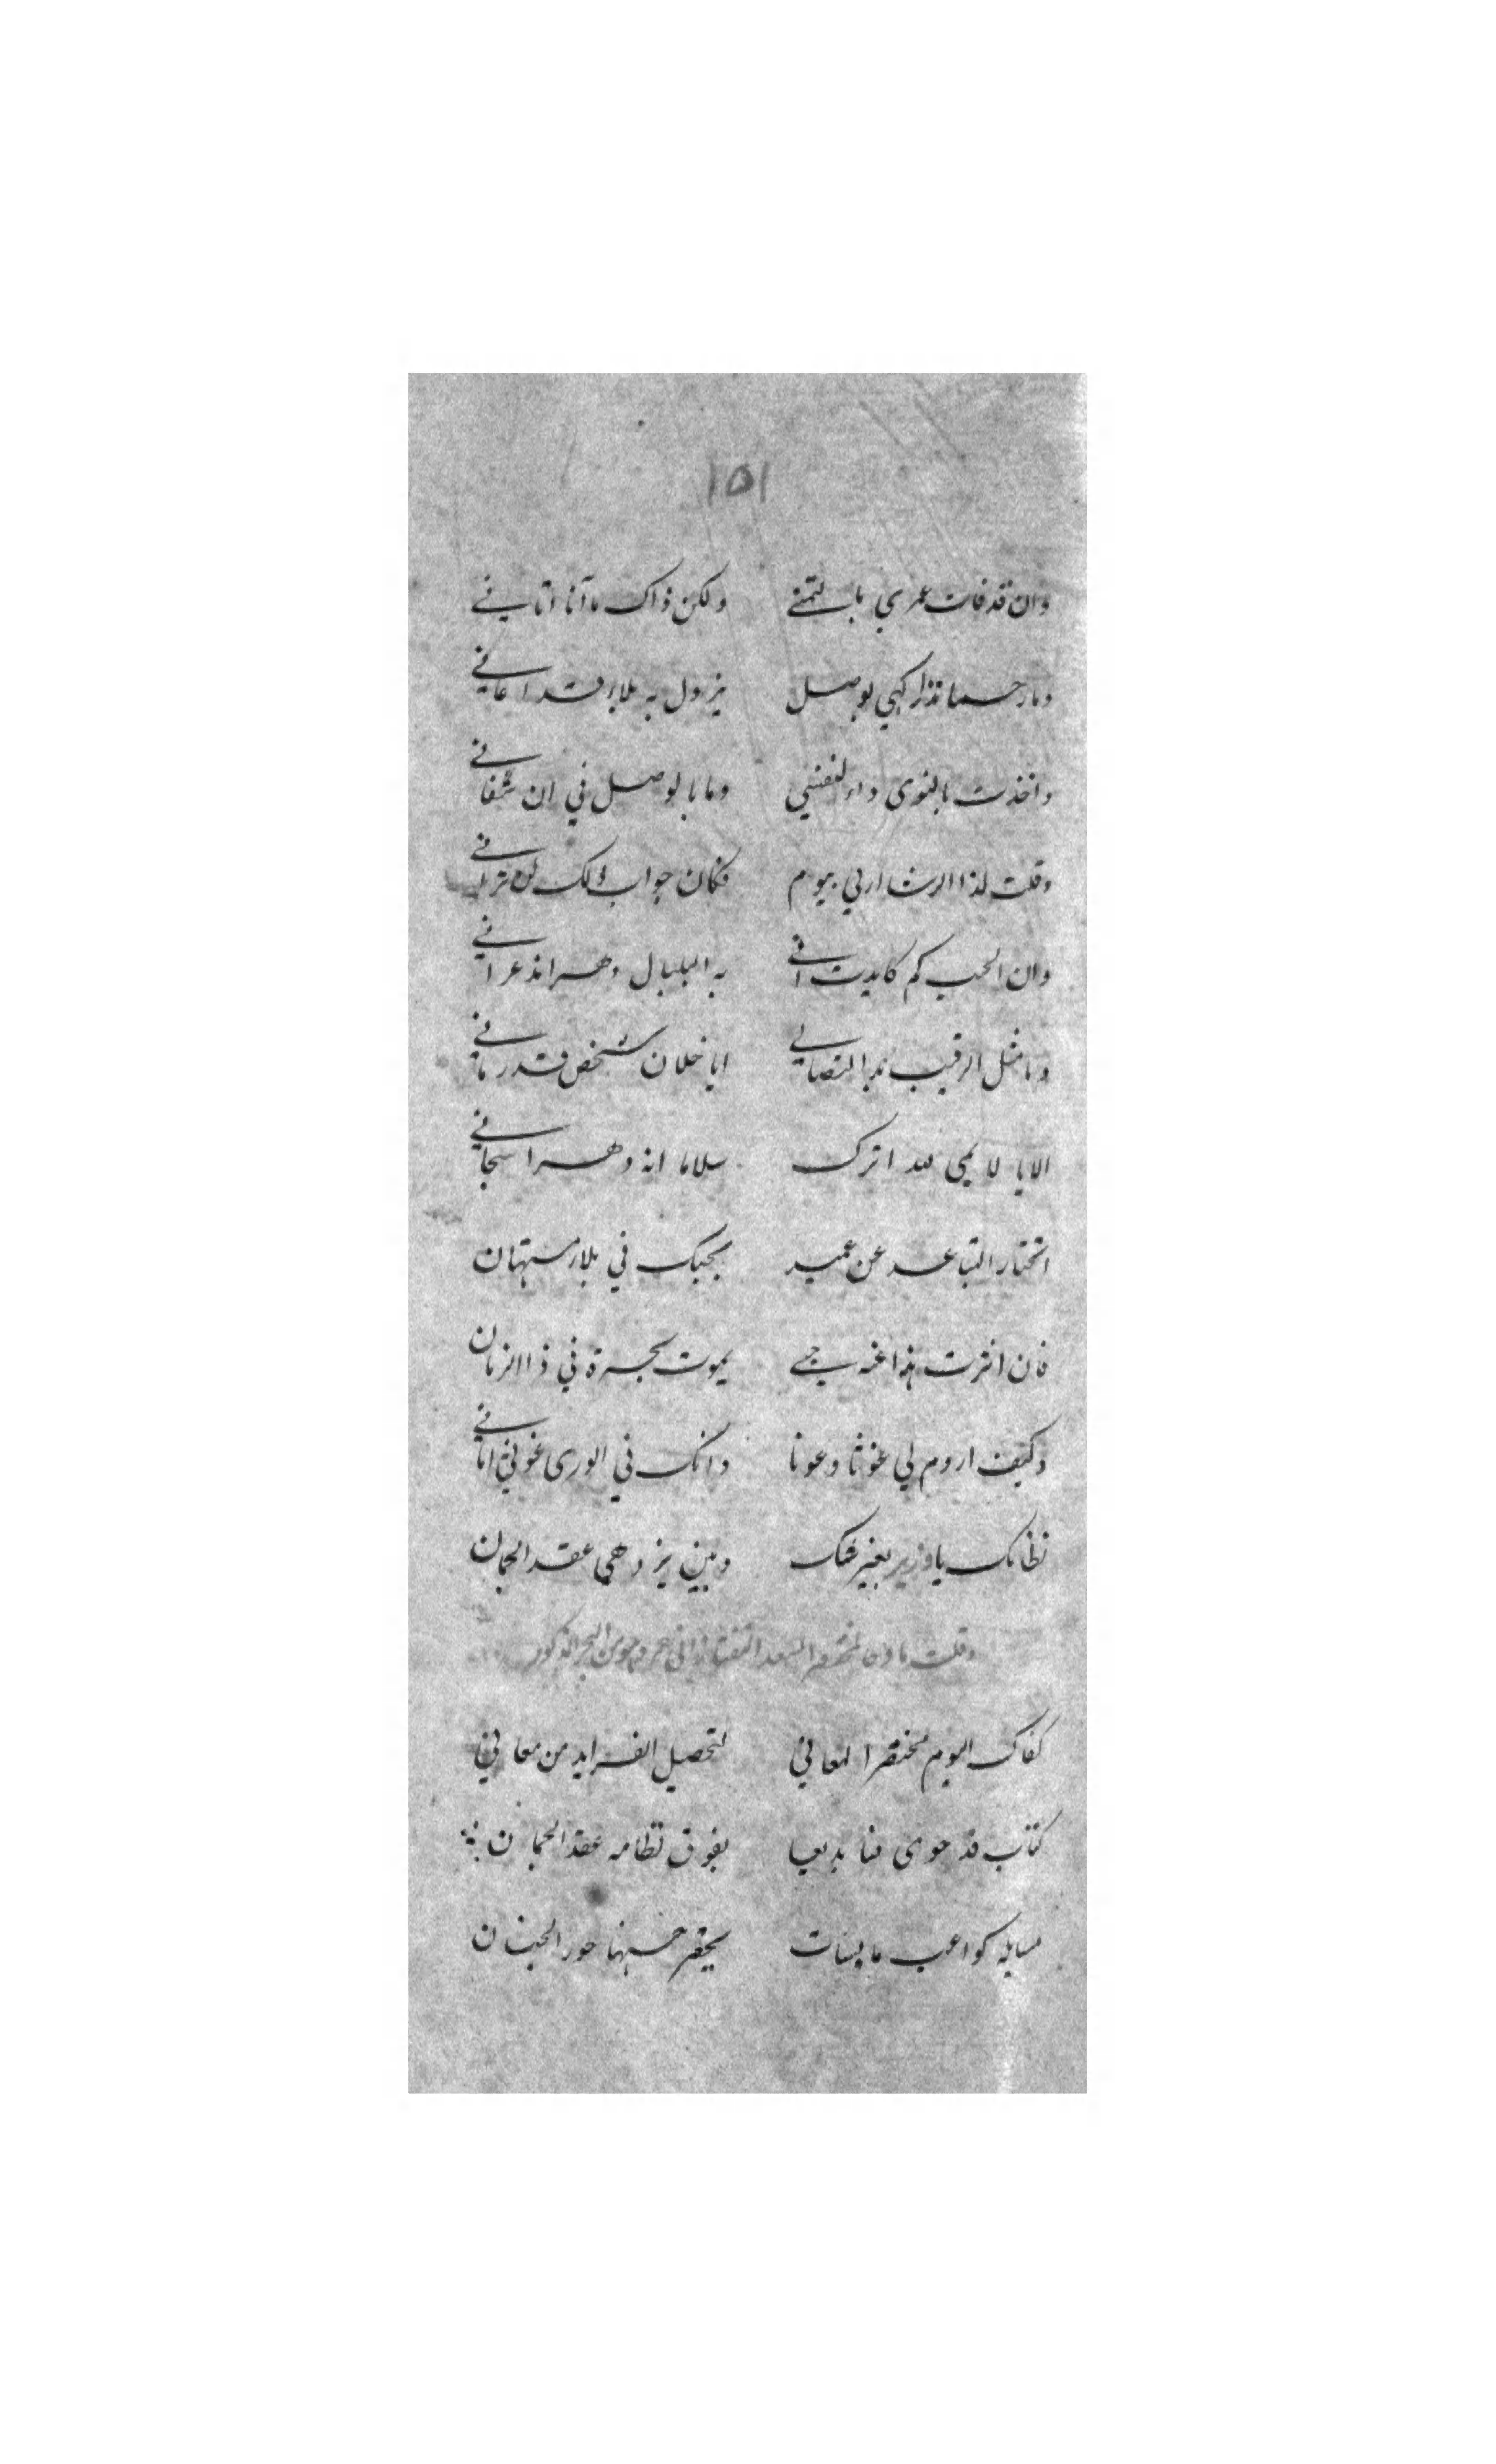 ١٥١
وان قد فات عمري بالتمني ولكن ذاك ما آنا اتاني
وما رحما تذاركني بوصل يزول به بلاء قد اعاني
واخذت بالنوى داء لنفسي وما بالوصل في ان شفاني
وقلت لذا الرشا ارني بيوم فكان جواب ذلك لن تراني
وان الحب كم كابدت اني به البلبال دهرا قد عراني
وما مثل الرقيب بدا التصابي ايا خلان شخص قد رماني
الايا لايمي لله اترك سلاما انه دهرا سجاني
اتختار التباعد عن عميد بحبك في بلاء مستهان
فان اخترت هذا عنه حبي يموت بحسرة في ذا الزمان
وكيف اروم لي غوثا وعونا وانك في الورى غوثي اماني
نظامك يا وزير بغير شك وبين يزدهي عقد الجمان
وقلت مادحا لمختصر السعد التفتازاني من البحر المذكور
كفاك اليوم مختصر المعاني لتحصيل الفرايد من معاني
كتاب قد حوى فنا بديعا يفوق نظامه عقد الجمان
مسايله كواعب مايسات يحقر حسنها حور الجنان